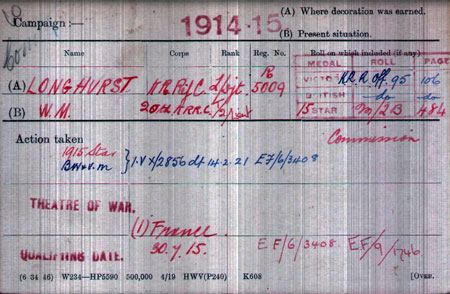 Campaign :— 1914-15 (A) Where decoration was earned.
(B) Present situation.
Name Corps Rank Reg. No. Roll on which included (if any)
MEDAL ROLL PAGE
(A) LONGHURST K.R.Rif.C. R 5009 VICTO K.R.R. Off. 95 106
BRITISH do do
(B) W.M. 20th K.R.R.C. 2/Lieut 15 STAR M/2B 484
Action taken Commission
1915 Star
BW & V.M } I.V X/2856 dt 14.2.21 EF/6/3408
THEATRE OF WAR.
(1) France
QUALIFYING DATE. 30.7.15. EF/6/3408. EF/9/1746
(6 34 46) W234—HP5590 500,000 4/19 HWV(P240) K608 [OVER.